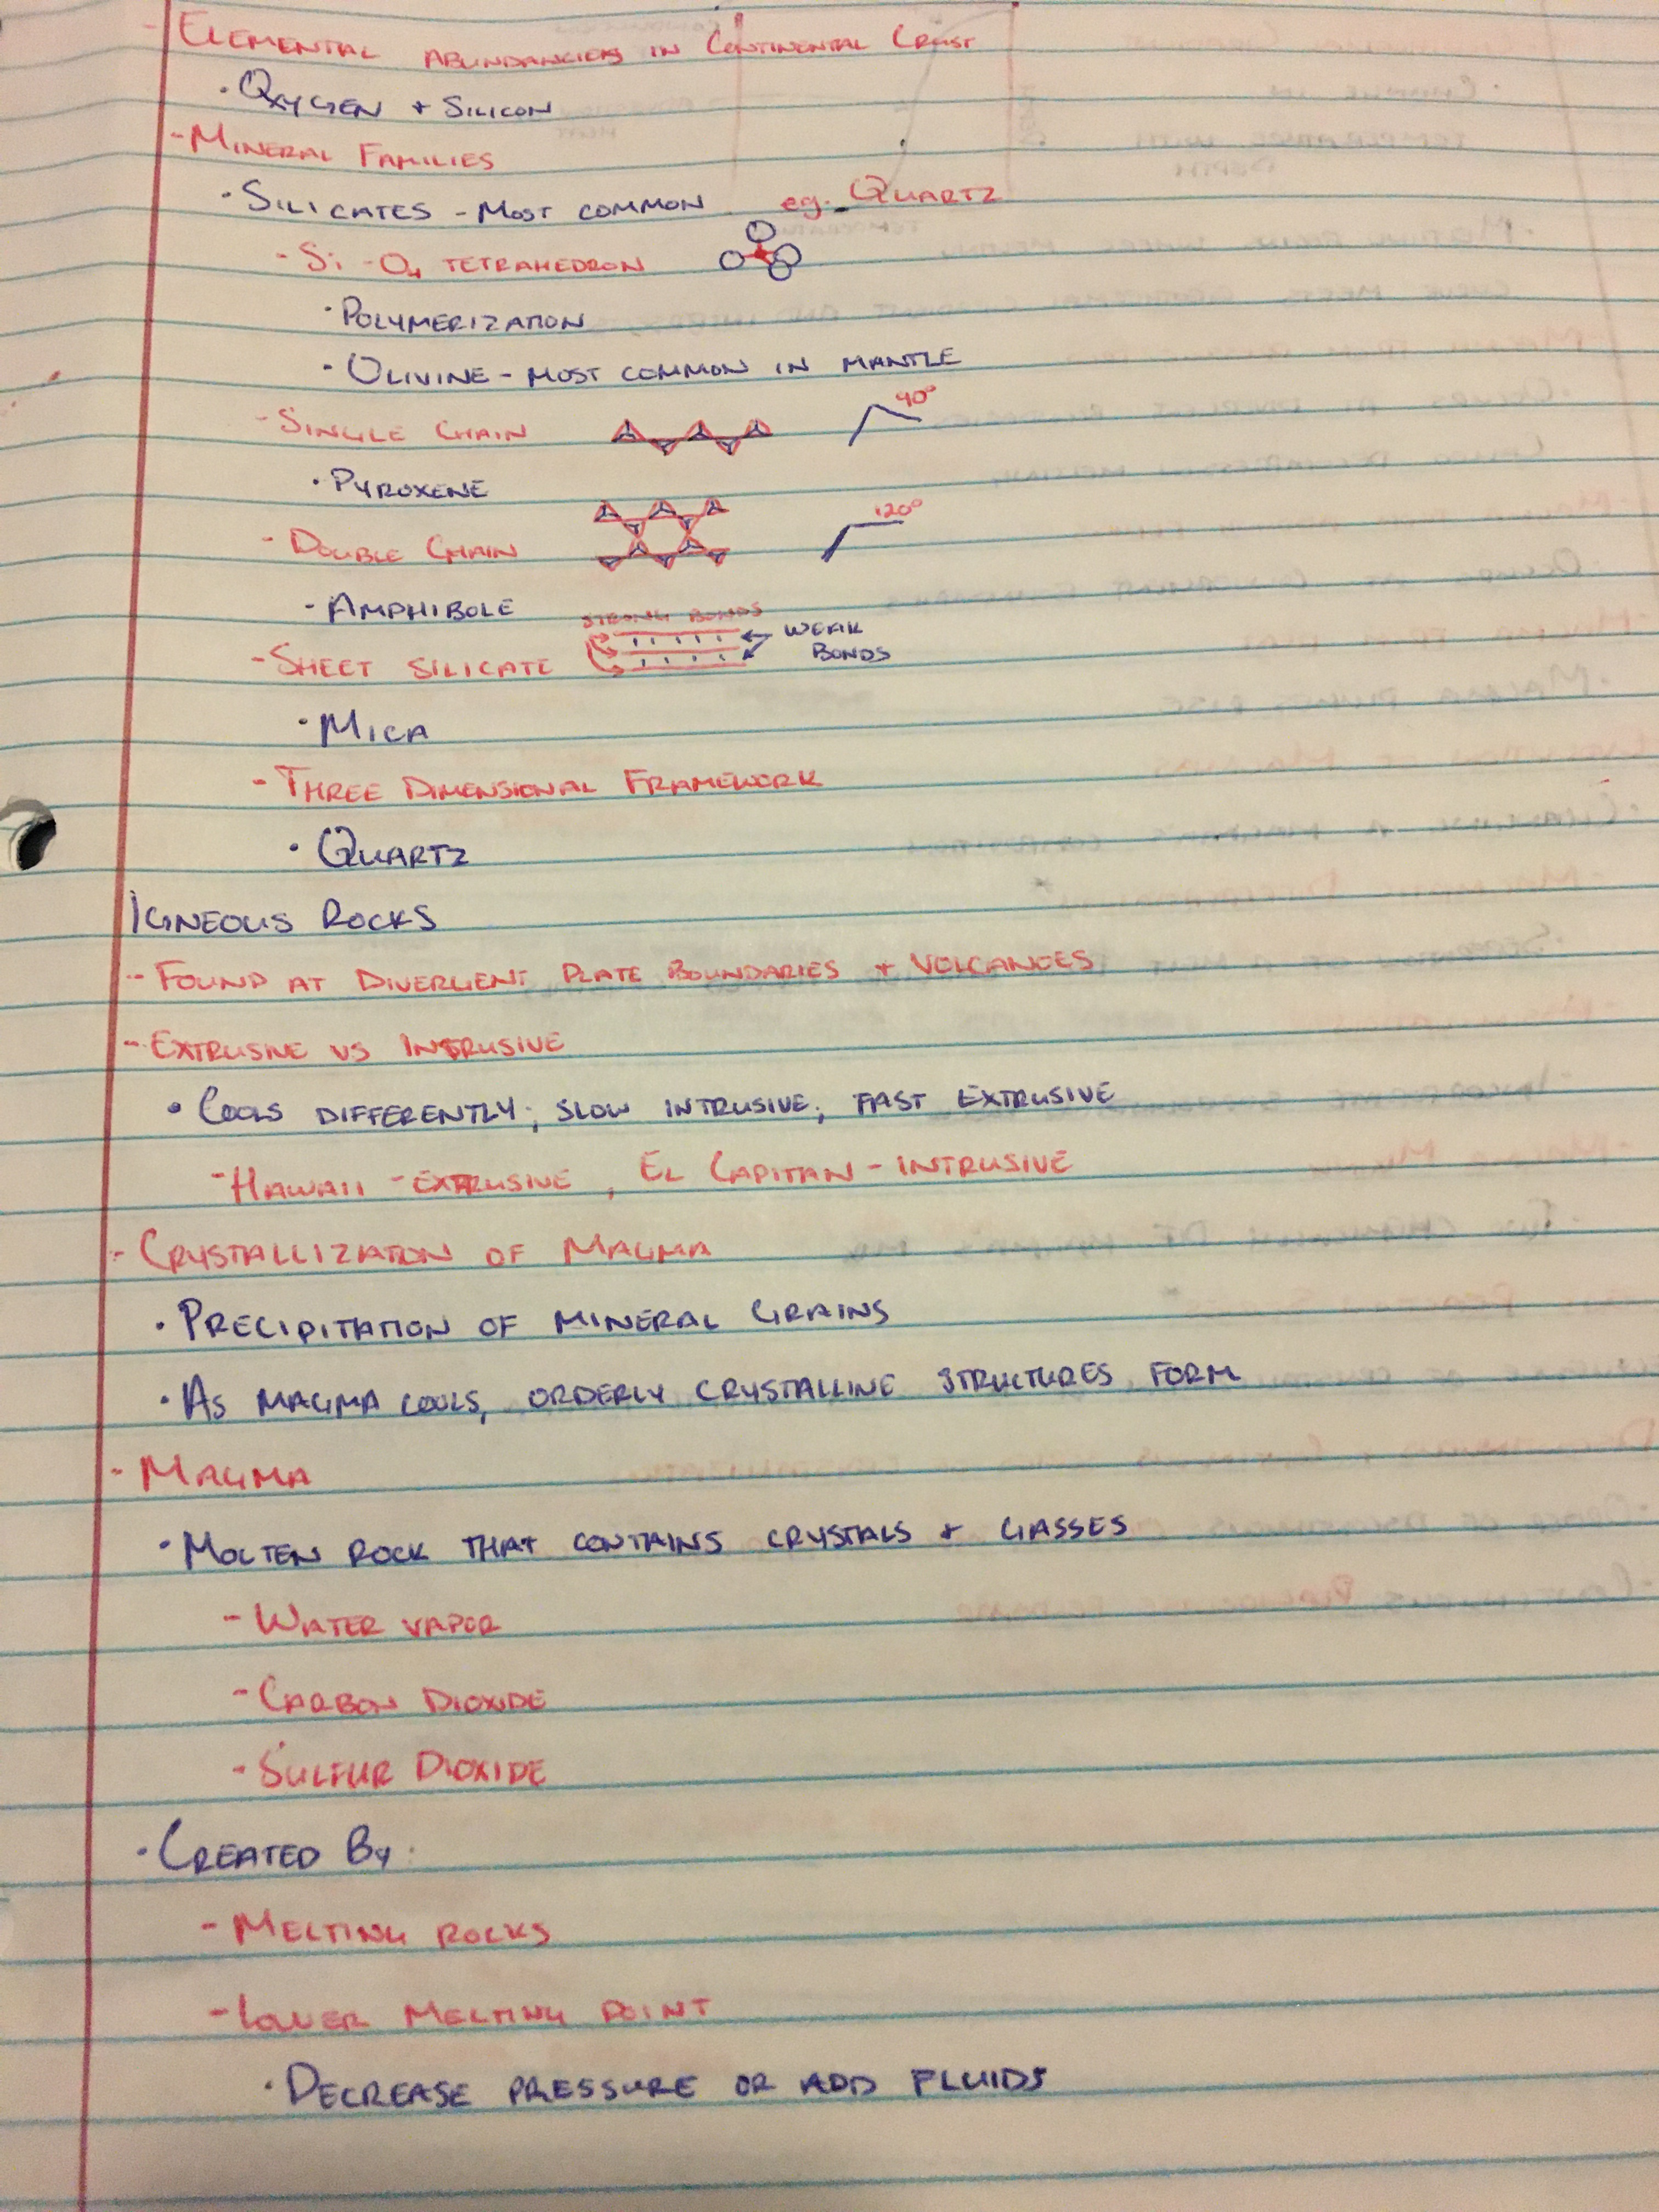 - Elemental abundancies in Continental Crust
· Oxygen + Silicon
- Mineral Families
· Silicates - Most common eg. Quartz
- Si - O4 tetrahedron
· Polymerization
· Olivine - most common in mantle
- Single Chain 90°
· Pyroxene
- Double Chain 120°
- Amphibole
Strong Bonds
Weak Bonds
- Sheet silicate
· Mica
- Three Dimensional Framework
· Quartz
Igneous Rocks
- Found at Divergent Plate Boundaries + Volcanoes
- Extrusive vs Intrusive
· Cools differently; slow intrusive; fast extrusive
- Hawaii - extrusive, El Capitan - intrusive
- Crystallization of Magma
· Precipitation of mineral grains
· As magma cools, orderly crystalline structures form
- Magma
· Molten rock that contains crystals + gasses
- Water vapor
- Carbon Dioxide
- Sulfur Dioxide
· Created By:
- Melting rocks
- Lower melting point
· Decrease pressure or add fluids